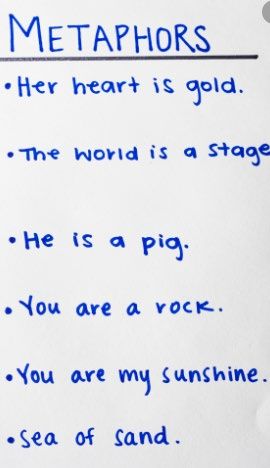 METAPHORS
• Her heart is gold.
• The world is a stage
• He is a pig.
• You are a rock.
• You are my sunshine.
• Sea of sand.